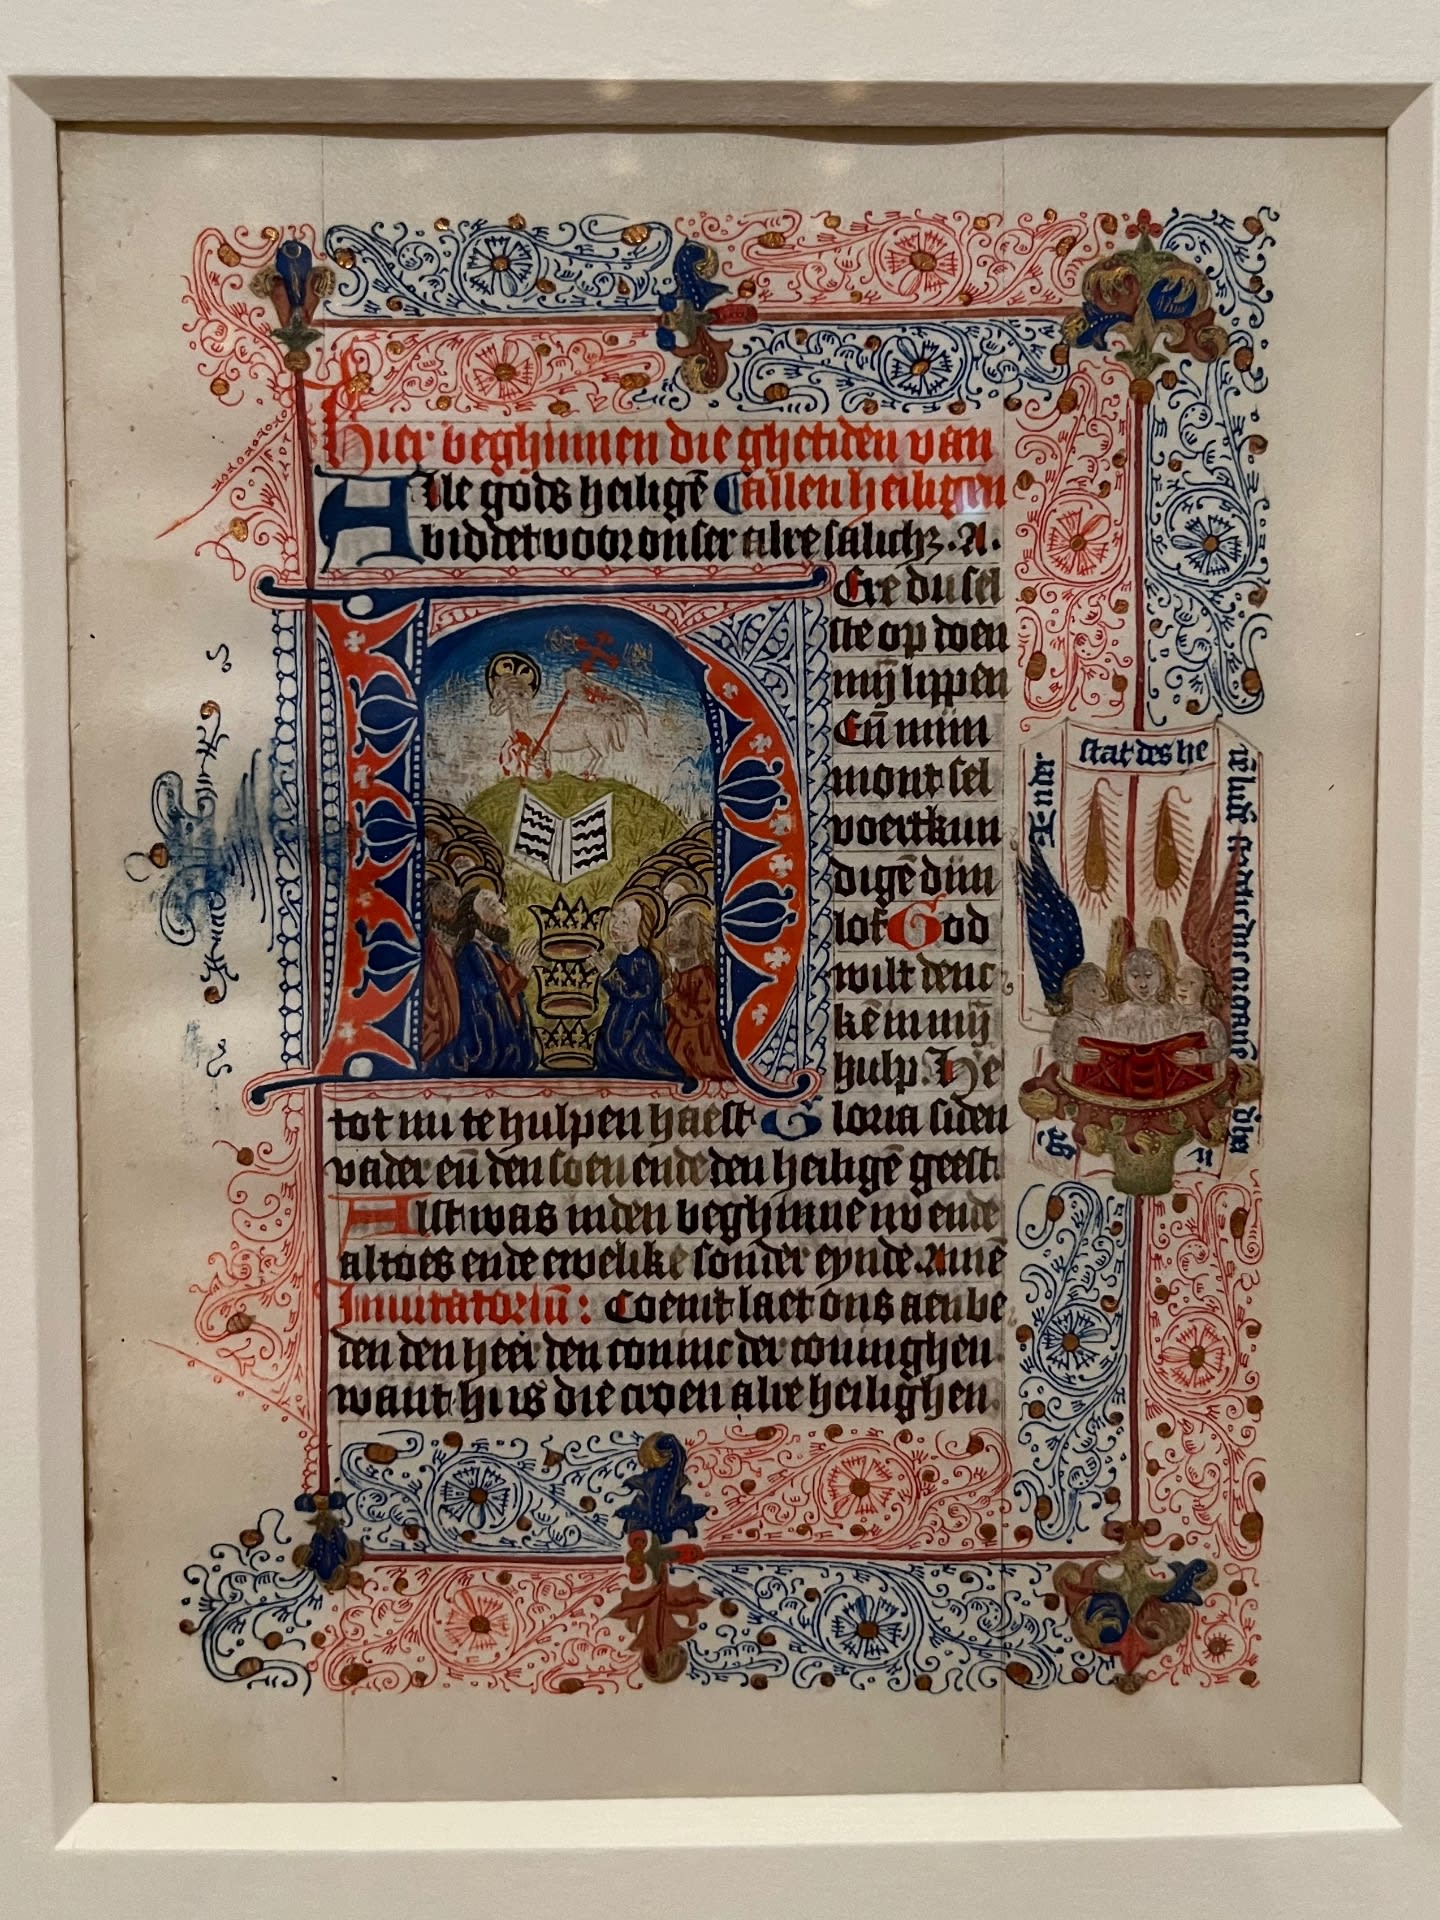 Hier beghinnen die ghetiden van
Alle gods heiligē Callen heiligen
biddet voor onser alre salich₃. A.
Ere du sel
ste op doen
mijn lippen
Eñ miin
mont sel
voertkun
digē diin
lof God
wilt denc
kē in mijn
hulp. He
tot mi te hulpen haest Gloria siden
vader eñ den soen ende den heiligē geest
Alst was inden beghinne nv ende
altoes ende ewelike sonder eynde. Amē
Inuitatoriū: Coemt laet ons aenbe
den den heer den coninc der coninghen
want hi is die croen alre heilighen
In der
stat des he